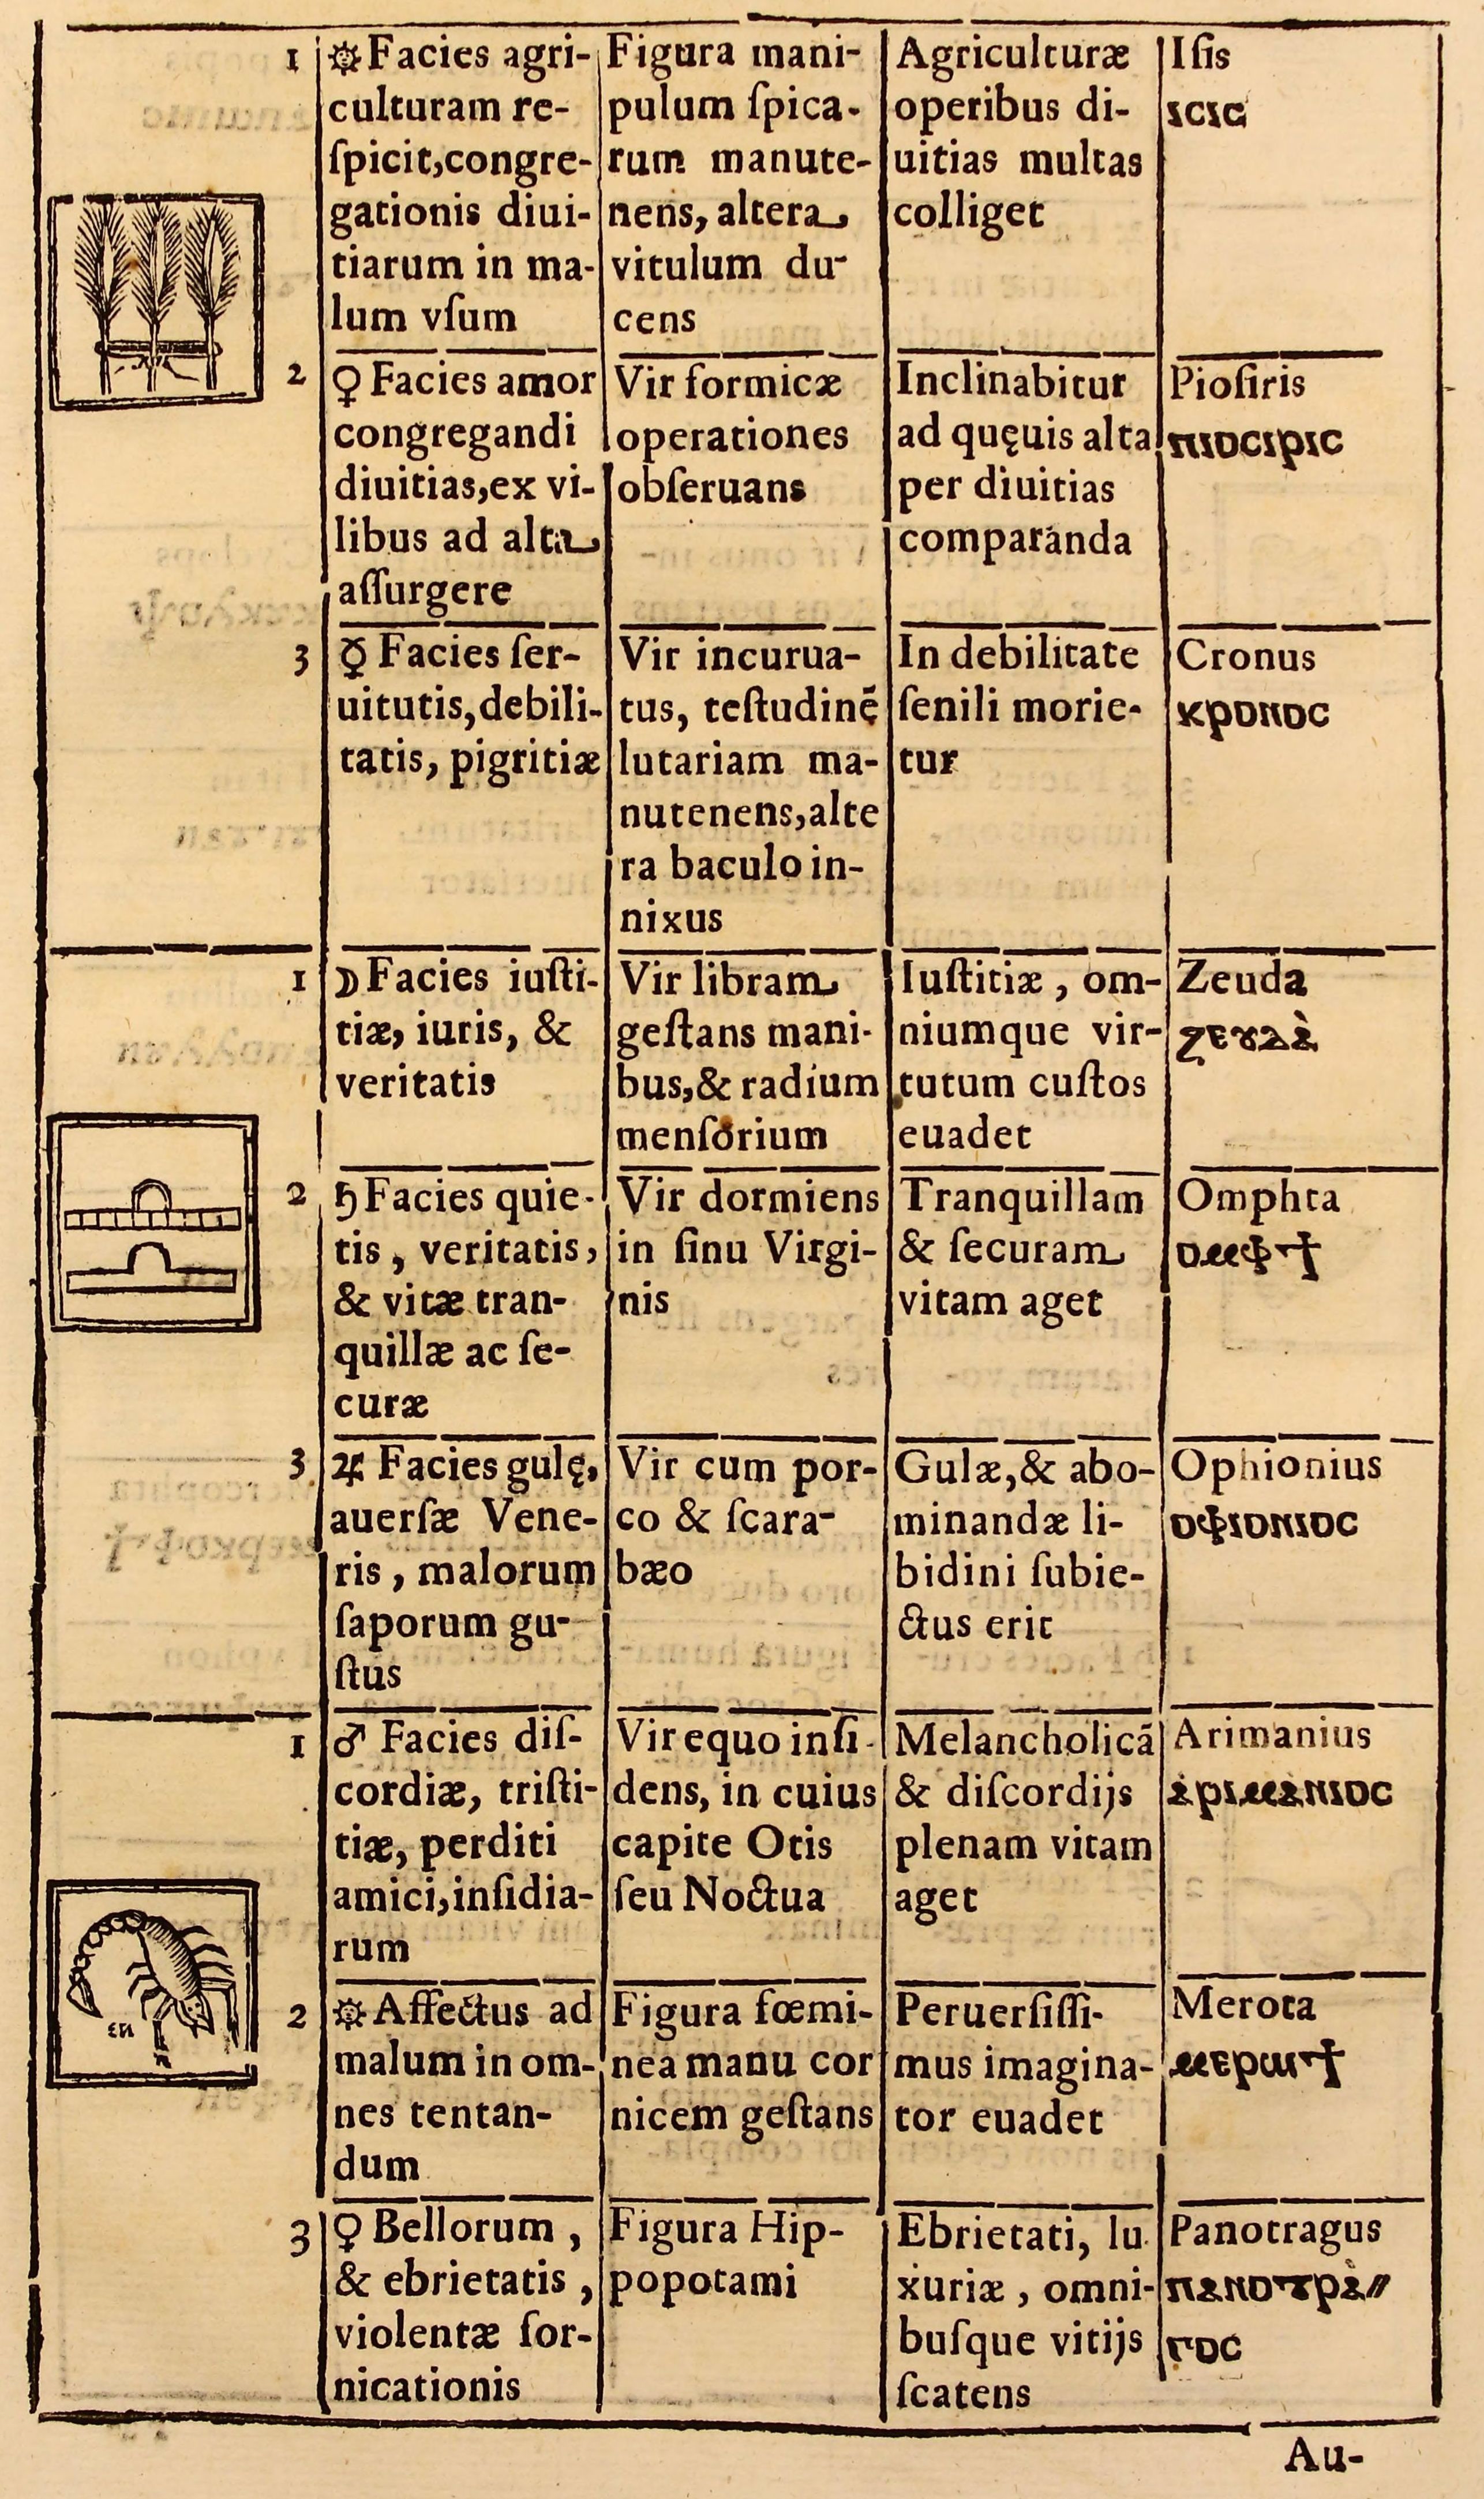 1
☼ Facies agri-
culturam re-
ſpicit,congre-
gationis diui-
tiarum in ma-
lum vſum
Figura mani-
pulum ſpica-
rum manute-
nens, altera
vitulum du-
cens
Agriculturæ
operibus di-
uitias multas
colliget
Iſis
ⲓⲥⲓⲥ
2
♀ Facies amor
congregandi
diuitias,ex vi-
libus ad alta
aſſurgere
Vir formicæ
operationes
obſeruans
Inclinabitur
ad quęuis alta
per diuitias
comparanda
Pioſiris
ⲡⲓⲟⲥⲓⲣⲓⲥ
3
☿ Facies ſer-
uitutis,debili-
tatis, pigritiæ
Vir incurua-
tus, teſtudinẽ
lutariam ma-
nutenens,alte
ra baculo in-
nixus
In debilitate
ſenili morie-
tur
Cronus
ⲕⲣⲟⲛⲟⲥ
1
☽ Facies iuſti-
tiæ, iuris, &
veritatis
Vir libram
geſtans mani-
bus,& radium
menſorium
Iuſtitiæ , om-
niumque vir-
tutum cuſtos
euadet
Zeuda
ⲍⲉⲩⲇⲁ̀
2
♄ Facies quie-
tis , veritatis,
& vitæ tran-
quillæ ac ſe-
curæ
Vir dormiens
in ſinu Virgi-
nis
Tranquillam
& ſecuram
vitam aget
Omphta
ⲟⲙⲫⲧϯ
3
♃ Facies gulę,
auerſæ Vene-
ris , malorum
ſaporum gu-
ſtus
Vir cum por-
co & ſcara-
bæo
Gulæ,& abo-
minandæ li-
bidini ſubie-
ctus erit
Ophionius
ⲟⲫⲓⲟⲛⲓⲟⲥ
1
♂ Facies diſ-
cordiæ, triſti-
tiæ, perditi
amici,inſidia-
rum
Vir equo inſi-
dens, in cuius
capite Otis
ſeu Noctua
Melancholicã
& diſcordijs
plenam vitam
aget
Arimanius
ⲁ̀ⲣⲓⲙⲁ̀ⲛⲓⲟⲥ
ⲉⲛ
2
☼ Affectus ad
malum in om-
nes tentan-
dum
Figura fœmi-
nea manu cor
nicem geſtans
Peruerſiſſi-
mus imagina-
tor euadet
Merota
ⲙⲉⲣⲱⲧϯ
3
♀ Bellorum ,
& ebrietatis ,
violentæ for-
nicationis
Figura Hip-
popotami
Ebrietati, lu
xuriæ , omni-
buſque vitijs
ſcatens
Panotragus
ⲡⲁⲛⲟⲧⲣⲁ̀⸗
ⲅⲟⲥ
Au-